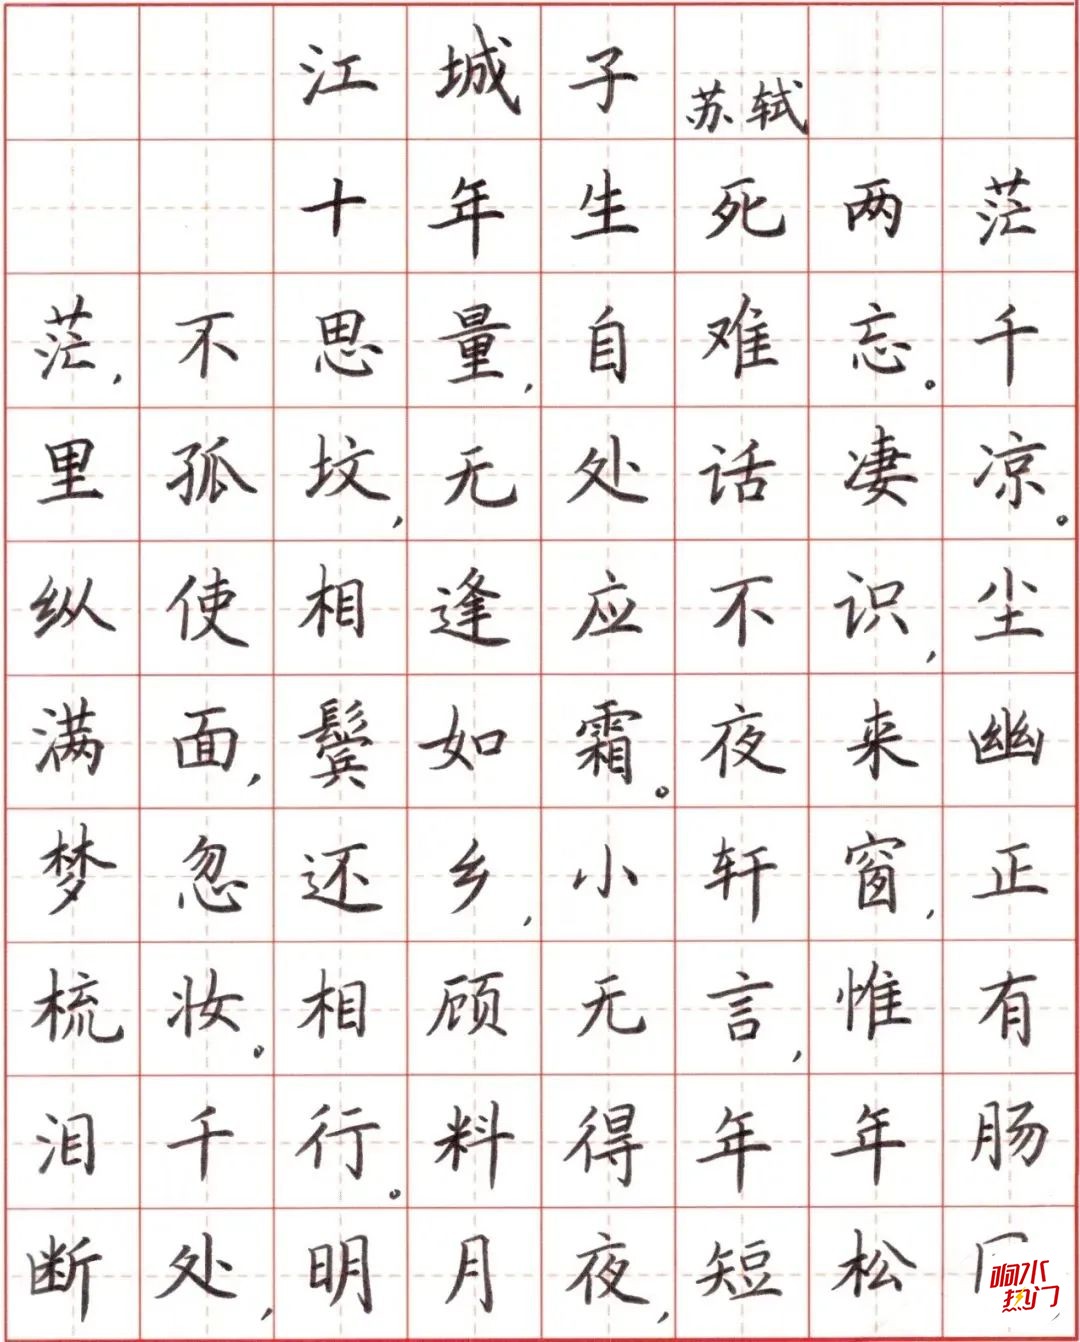 江城子 苏轼
十年生死两茫
茫,不思量,自难忘。千
里孤坟,无处话凄凉。
纵使相逢应不识,尘
满面,鬓如霜。夜来幽
梦忽还乡,小轩窗,正
梳妆。相顾无言,惟有
泪千行。料得年年肠
断处,明月夜,短松
响水热门